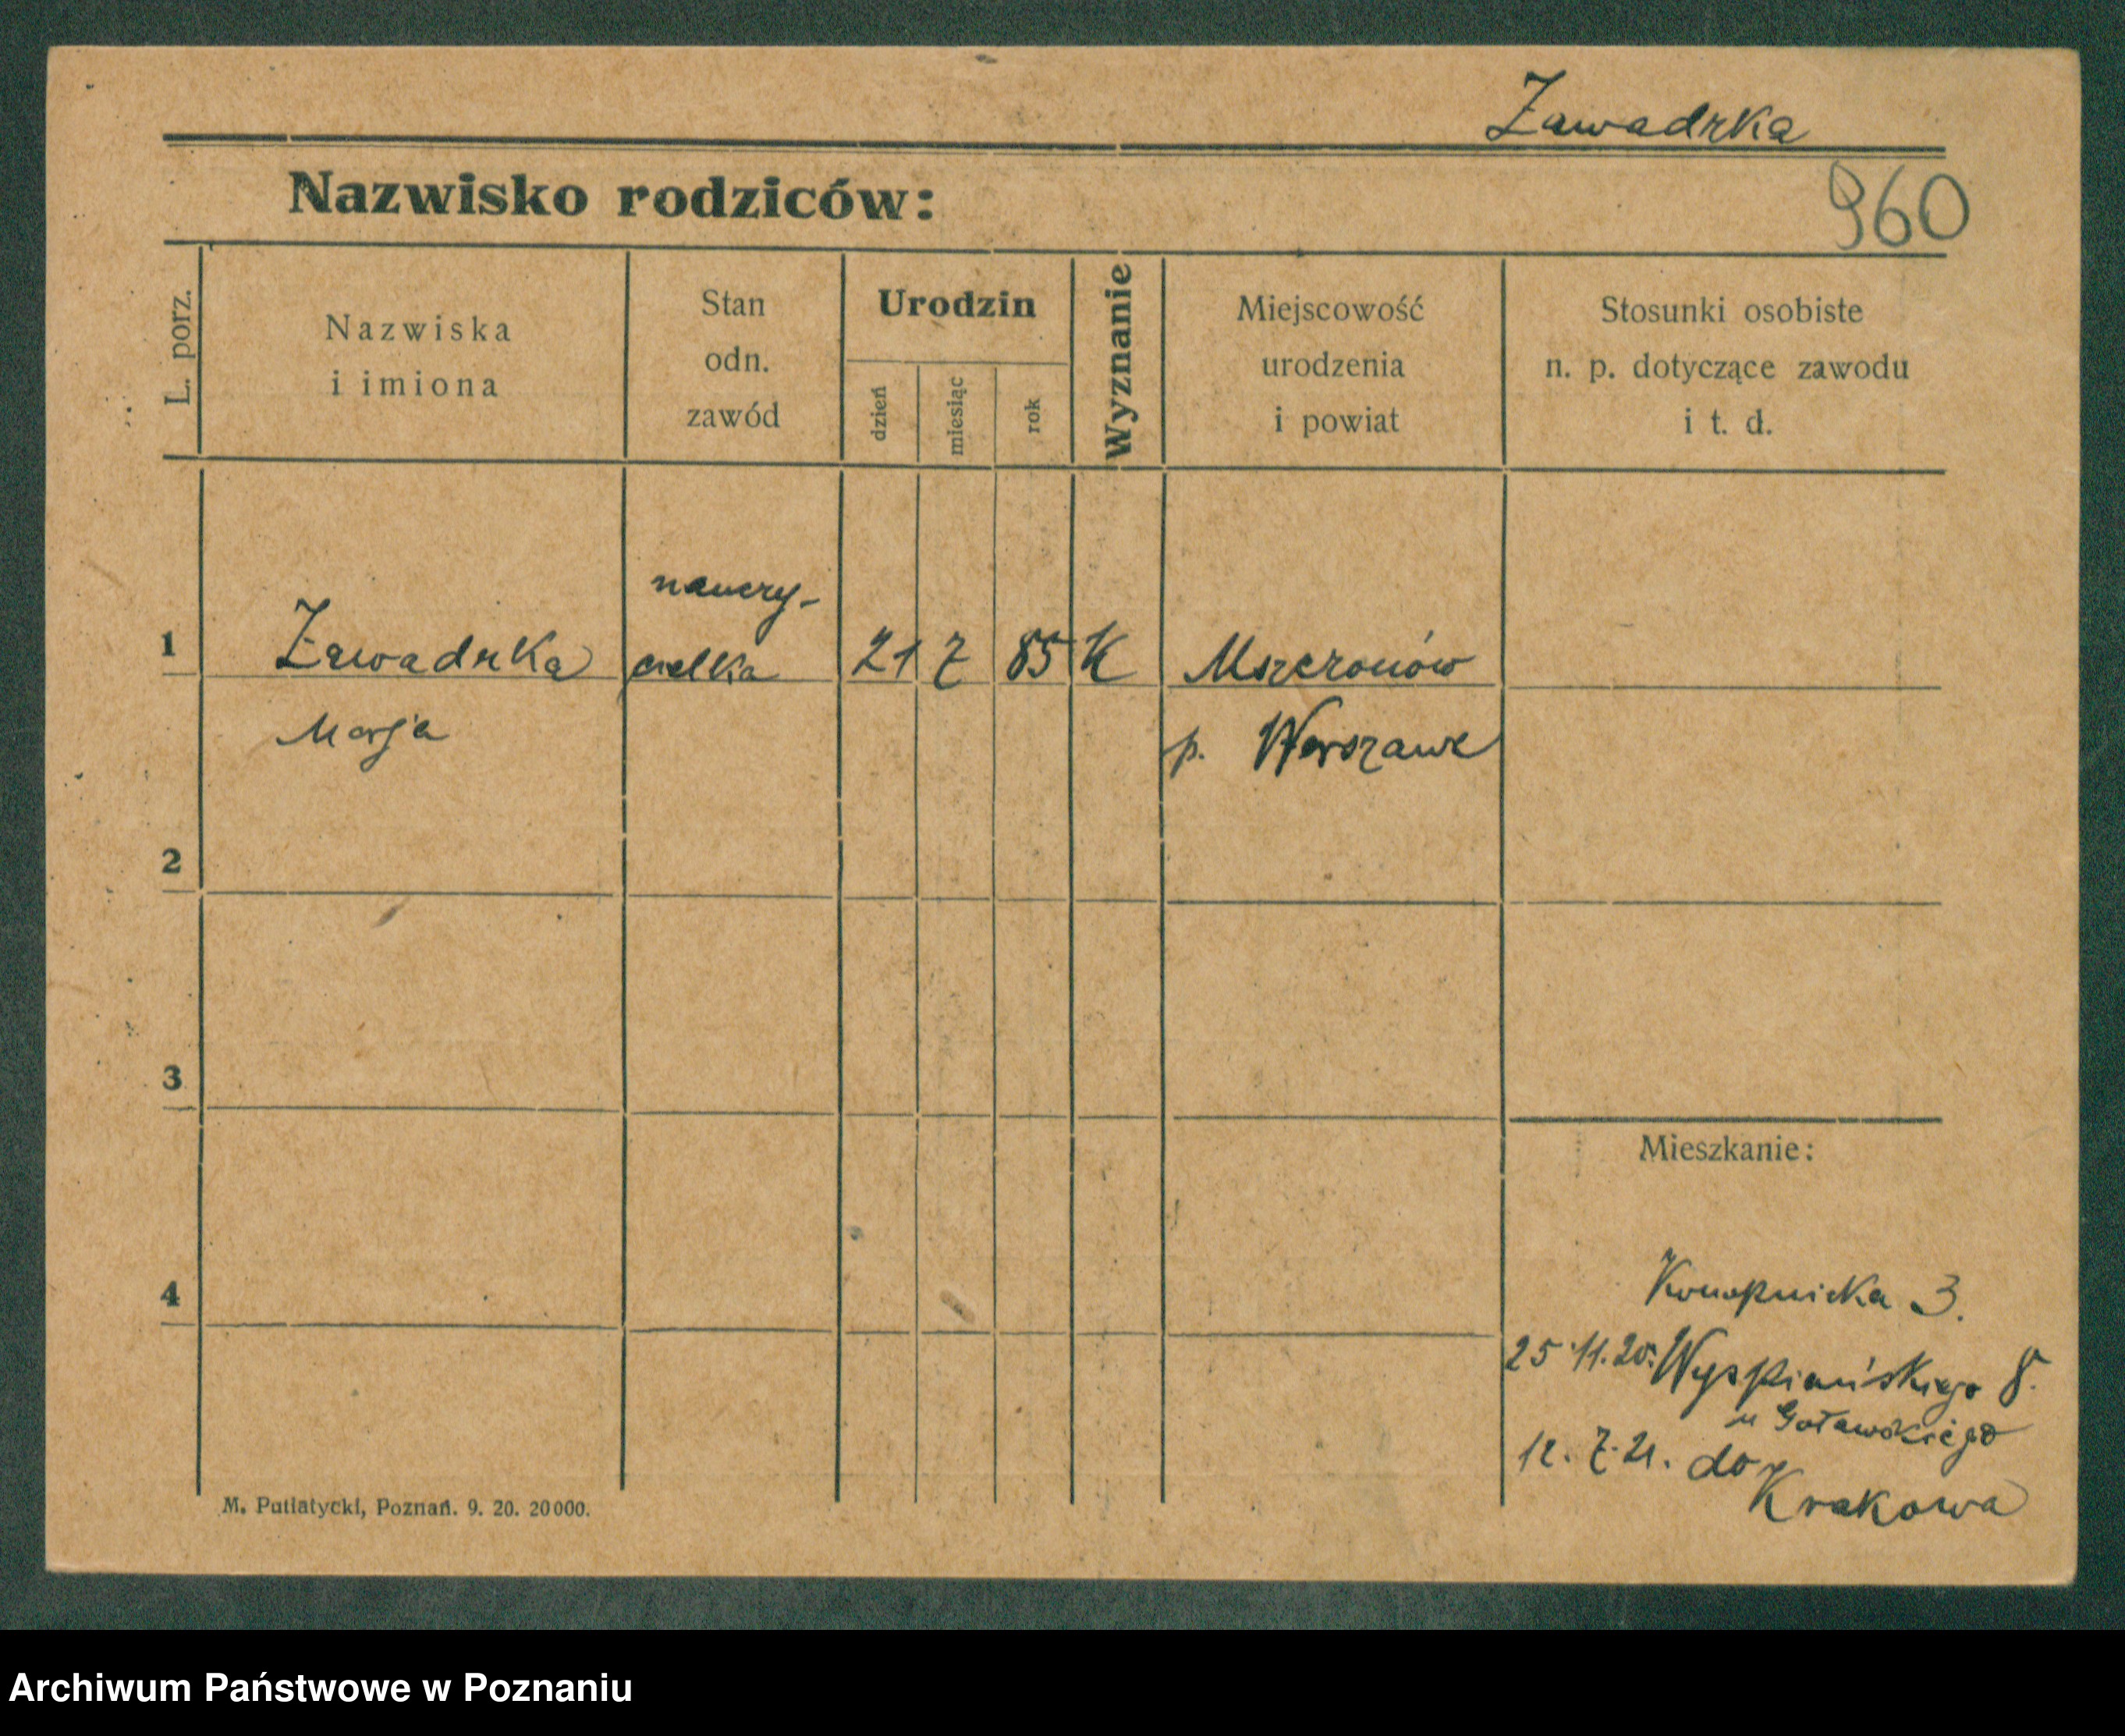 Zawadzka
Nazwisko rodziców:
960
L. porz.
Nazwiska
i imiona
Stan
odn.
zawód
Urodzin
dzień
miesiąc
rok
Wyznanie
Miejscowość
urodzenia
i powiat
Stosunki osobiste
n. p. dotyczące zawodu
i t. d.
nauczy-
1 Zawadzka cielka 21 7 85 K Mszczonów
Marja p. Warszawa
2
3
Mieszkanie:
4
Konopnicka 3.
25.11.20. Wyspiańskiego 8.
u
12. 7. 21. do
Krakowa
M. Putiatycki, Poznań. 9. 20. 20000.
Archiwum Państwowe w Poznaniu